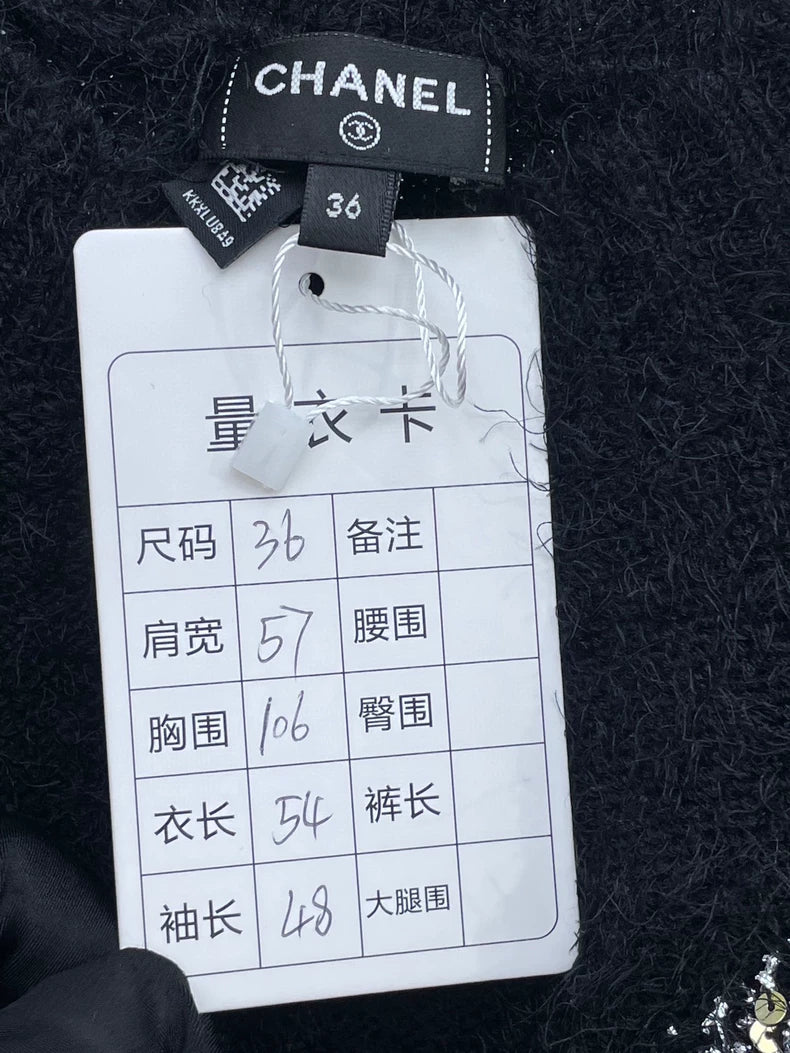 CHANEL
KKXLU8A9
36
量衣卡
尺码 36 备注
肩宽 57 腰围
胸围 106 臀围
衣长 54 裤长
袖长 48 大腿围